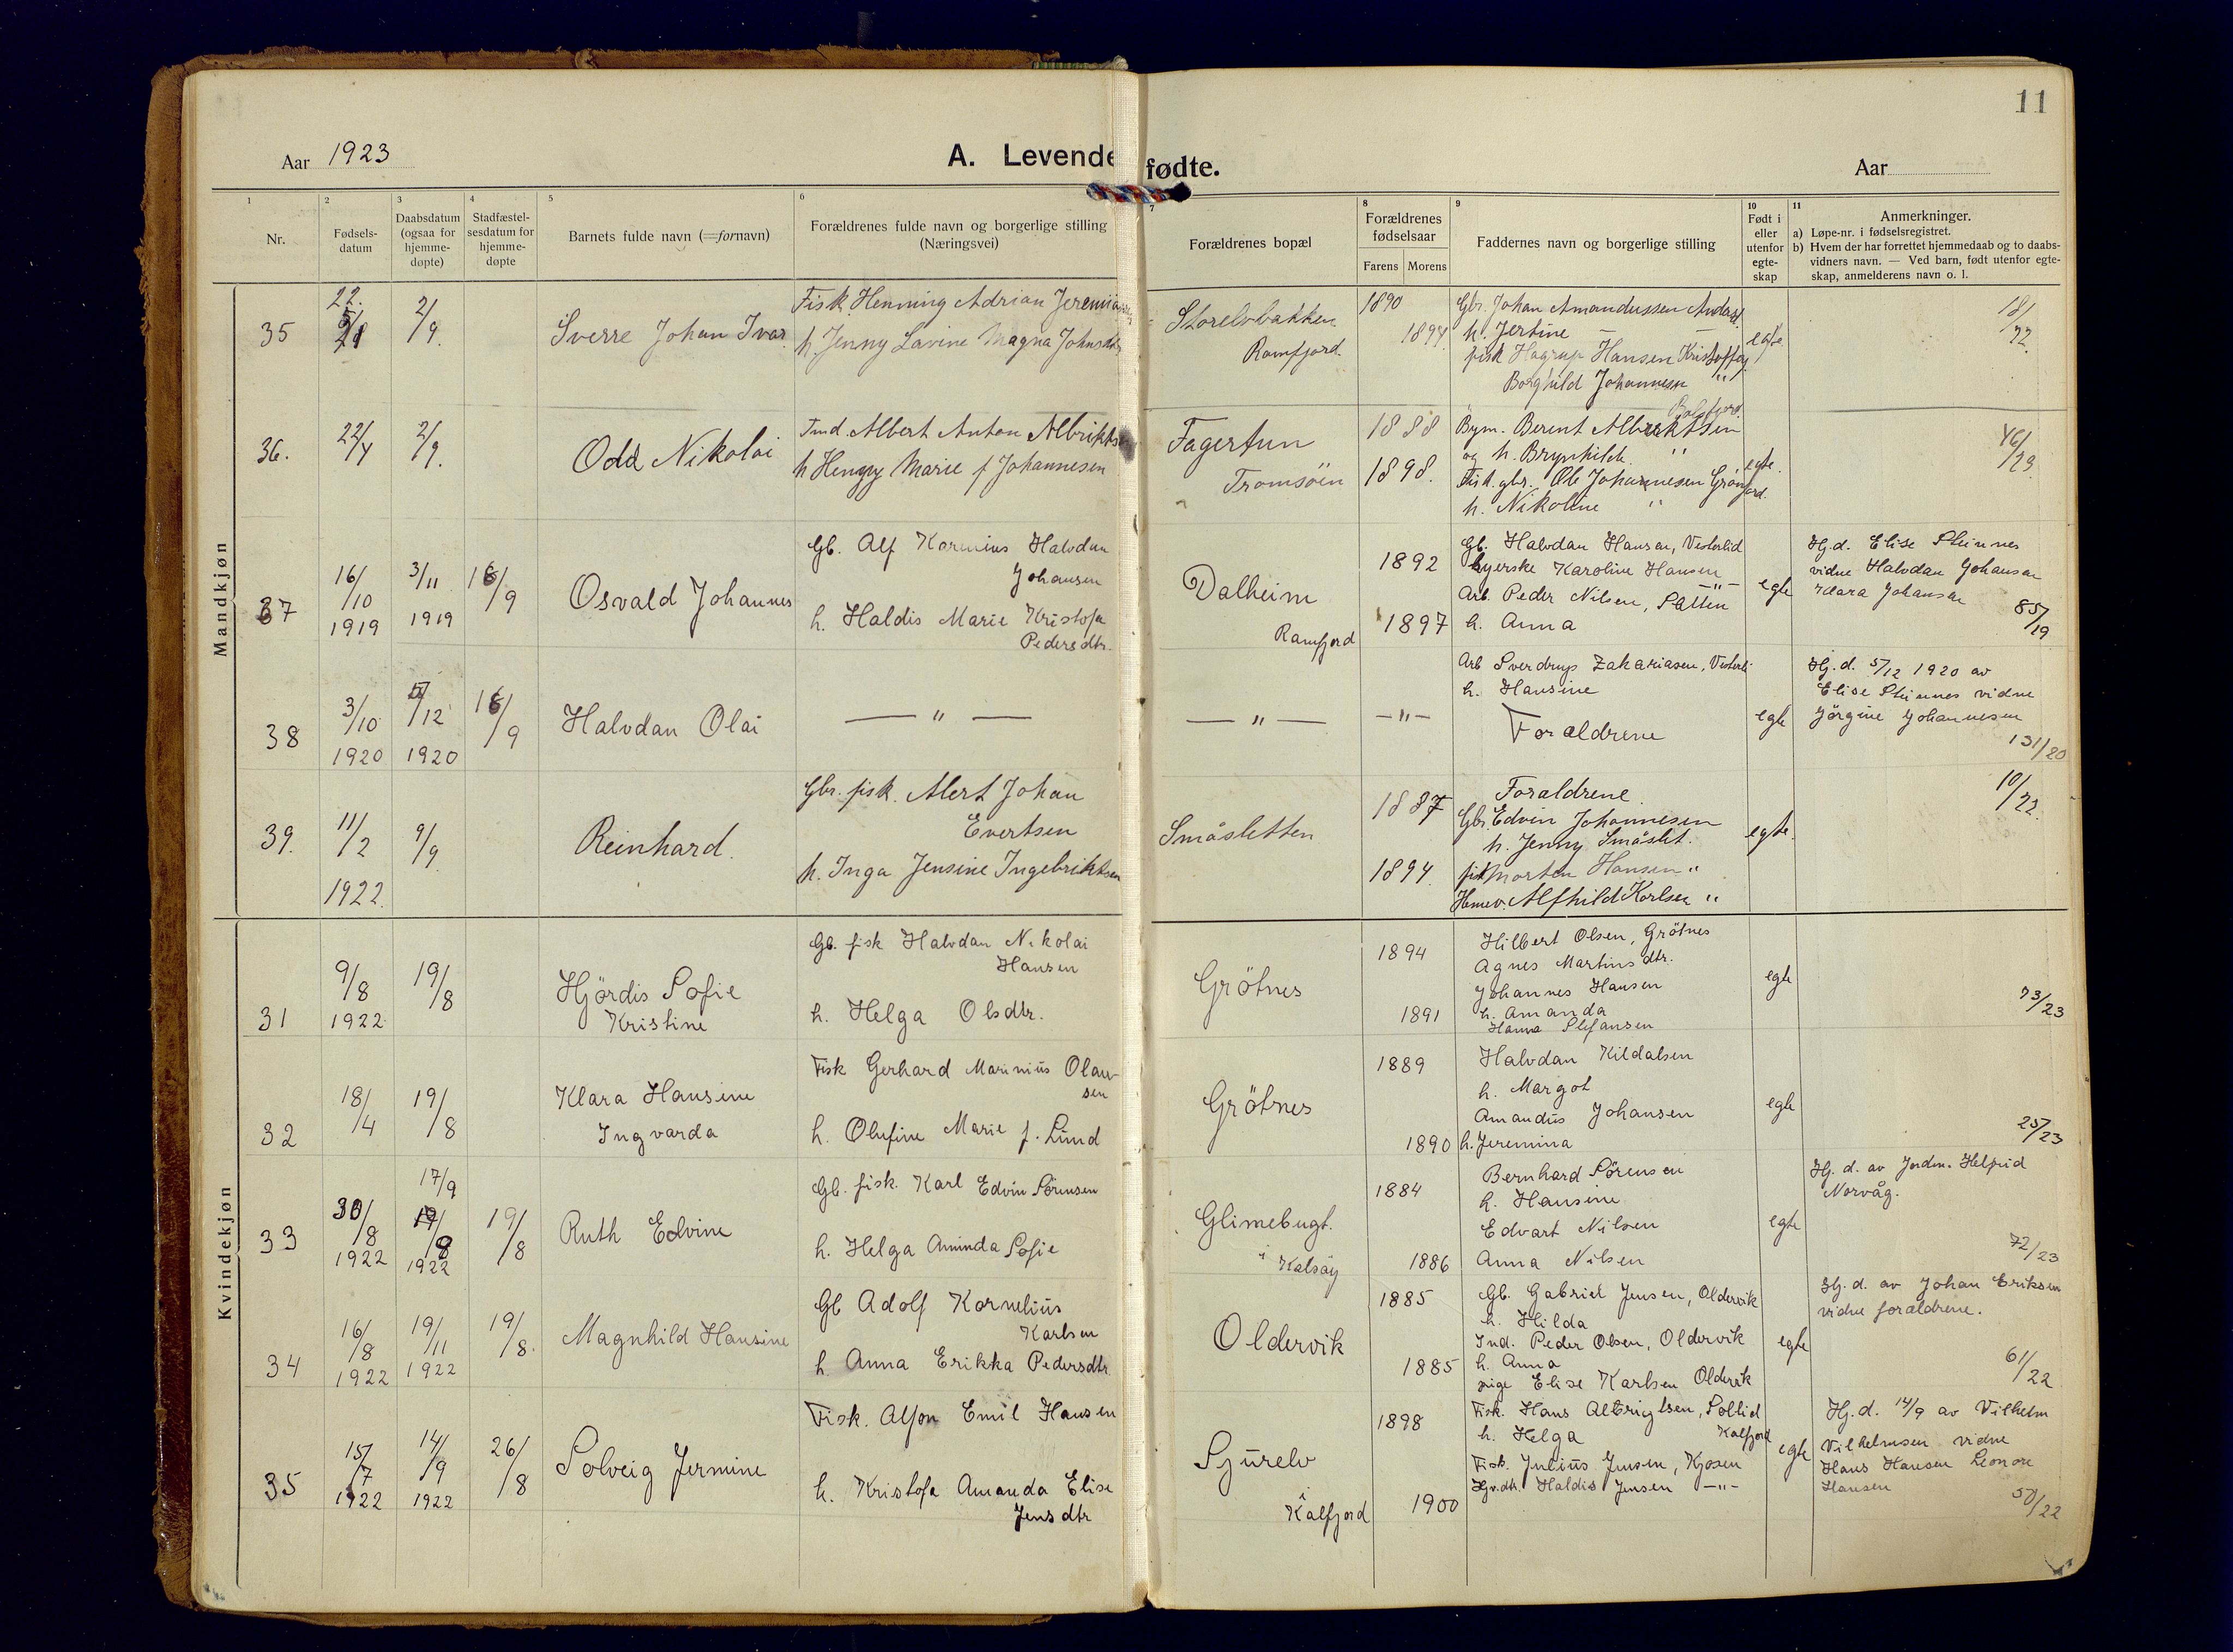 11
Aar 1923
A. Levende fødte.
Aar
1 2 3 4 5 6 7 8 9 10 11
Nr.
Fødsels-
datum
Daabsdatum
(ogsaa for
hjemme-
døpte)
Stadfæstel-
sesdatum for
hjemme-
døpte
Barnets fulde navn (=fornavn)
Forældrenes fulde navn og borgerlige stilling
(Næringsvei)
Forældrenes bopæl
Forældrenes
fødselsaar
Farens Morens
Faddernes navn og borgerlige stilling
Født i
eller
utenfor
egte-
skap
Anmerkninger.
a) Løpe-nr. i fødselsregistret.
b) Hvem der har forrettet hjemmedaab og to daabs-
vidners navn. — Ved barn, født utenfor egte-
skap, anmelderens navn o. l.
Mandkjøn
35
22.
2/9.
Sverre Johan Ivar
Fisk. Henning Adrian
h. Jenny Lavine Magna
Storelvbakken
Ramfjord.
1890
1894
Gbr. Johan Amandussen
h. Jertine —
fisk Hagrup Hansen
Borghild Johannesen "
egte
18/22.
36.
22/4
2/9.
Odd Nikolai
Albert Anton Albriktsen
h Henny Marie f Johannesen
Fagertun
Tromsöen
1888
1898.
Balsfjord.
Bym. Berent Albriktsen
og h. Brynhild "
Fisk. gbr. Ole Johannesen
h. Nikoline "
egte.
46/23.
37
16/10
1919
3/11
1919
16/9
Osvald Johannes
Gb. Alf Kornius Halvdan
Johansen
h. Haldis Marie Kristofa
Pedersdtr.
Dalheim
Ramfjord
1892
1897
Gb. Halvdan Hansen, Vesterlid
Karoline Hansen —"—
Arb. Peder Nilsen,
h. Anna
egte
Hj.d. Elise Steinnes
vidne Halvdan Johansen
Klara Johansen
85/19
38
3/10
1920
5/12
1920
16/9
Halvdan Olai
— " —
— " —
— " —
Arb Sverdrup Zakariasen,
h. Hansine
Foraldrene
egte
Hj.d. 5/12 1920 av
Elise Steinnes vidne
Jörgine Johannesen
131/20
39.
11/2
1922.
9/9.
Reinhard.
Gbr. fisk. Alert Johan
Evertsen
h. Inga Jensine Ingebriktsen
Småsletten
1887
1894.
Foraldrene.
Gbr. Edvin Johannesen
h. Jenny Småslet.
fisk Morten Hansen "
Alfhild Karlsen "
egte.
10/22.
Kvindekjøn
31
9/8
1922
19/8
Hjördis Sofie
Kristine
Gb. fisk Halvdan Nikolai
Hansen
h. Helga Olsdtr.
Grötnes
1894
1891
Hilbert Olsen, Grötnes
Agnes Martinsdtr.
Johannes Hansen
h. Amanda
Hanna Stefansen
egte
73/23
32
18/4
19/8
Klara Hansine
Ingvarda
Fisk Gerhard Marinius Olaus-
sen
h. Olufine Marie f. Lund
Grötnes
1889
1890
Halvdan Kildalsen
h. Margot
Amandus Johansen
h. Jeremina
egte
25/23
33
30/8
1922
17/9
1922
19/8
Ruth Edvine
Gb. fisk. Karl Edvin Sörensen
h. Helga Aminda Sofie
Glimebugt.
i Kalsøy
1884
1886
Bernhard Sörensen
h. Hansine
Edvart Nilsen
Anna Nilsen
egte
Hj. d. av Jordm. Helfrid
Norvåg.
72/23
34
16/8
1922
19/11
1922
19/8.
Magnhild Hansine
Gb Adolf Kornelius
Karlsen
h. Anna Erikka Pedersdtr
Oldervik
1885
1885
Gb. Gabriel Jensen, Oldervik
h. Hilda
Ind. Peder Olsen, Oldervik
h. Anna
pige Elise Karlsen Oldervik
egte
Hj. d. av Johan Eriksen
vidne foraldrene.
61/22
35
15/7
1922
14/9
1922
26/8
Solveig Jermine
Fisk. Alfon Emil Hansen
h. Kristofa Amanda Elise
Jensdtr
Sjurelv
i Kalfjord
1898
1900
Fisk. Hans Albrigtsen, Sollid
h. Helga Kalfjord
Fisk. Julius Jensen, Kjosen
Haldis Jensen —"—
egte
Hj.d. 14/9 av Vilhelm
Vilhelmsen vidne
Hans Hansen Leonore
Hansen
50/22